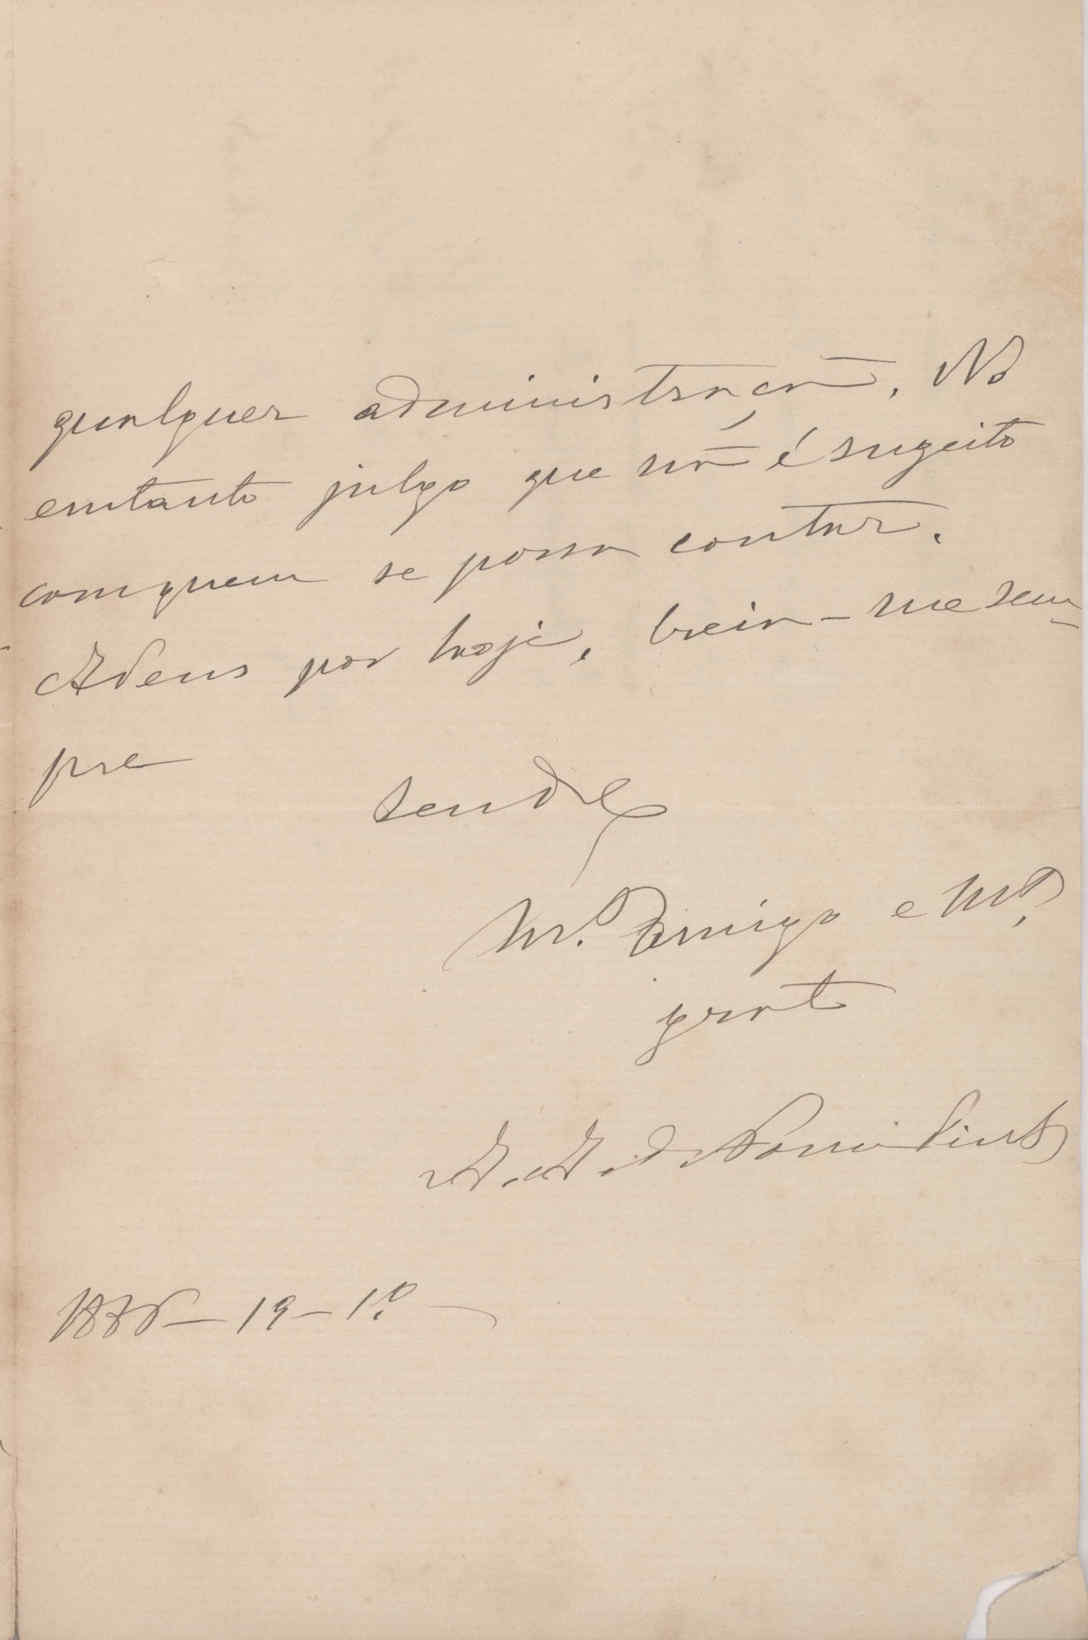 qualquer administracão. No
emtanto julgo que não é sugeito
com quem se possa contar.
Adeus por hoje, creia-me sem-
pre
sendo
Mr.º Amigo e Mt.º
grato
A. A. de Pinto
19-1.º